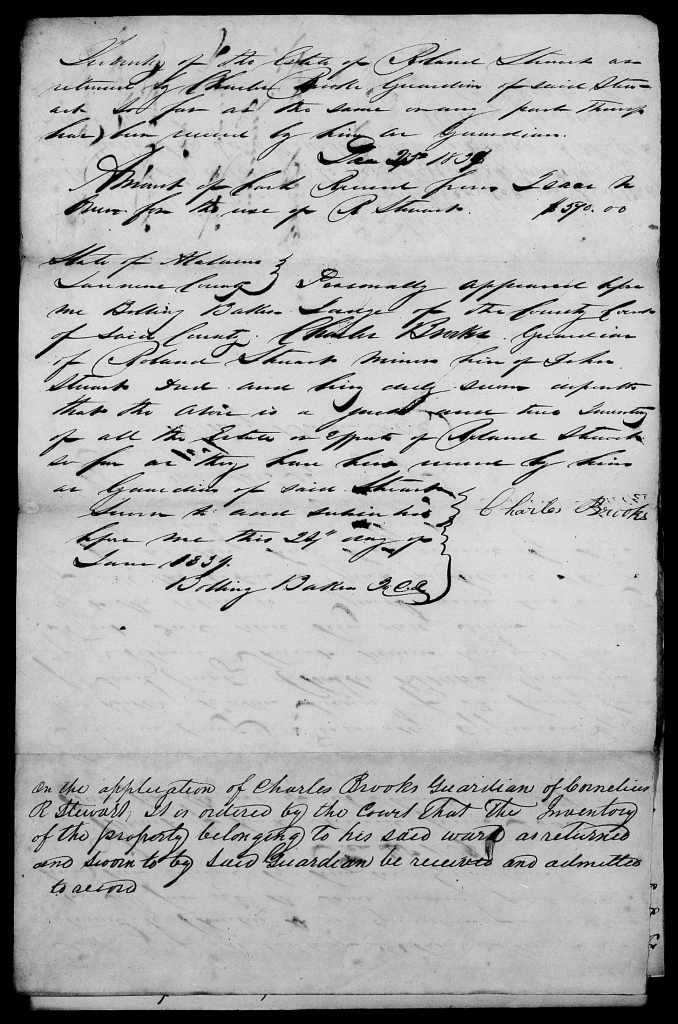 Inventory of the Estate of Roland Stuart as
returned by Charles Brooks Guardian of said Stu-
art so far as the same or any part thereof
have been received by him as Guardian.
Dec 25th 183
Amount of Cash Received from Isaac
for the use of R Stuart. $590.00
State of Alabama
Lawrence County } Personally appeared before
me Bolling Baker Judge of the County Court
of said County. Charles Brooks Guardian
of Roland Stuart minor heir of John
Stuart Decd. and being duly sworn deposeth
that the above is a just and true Inventory
of all the Estate or effects of Roland Stuart
so far as they have been received by him
as Guardian of said Stuart
Sworn to and subscribed } Charles Brooks
before me this 24th day of
June 1839.
Bolling Baker J.C.C.
On the application of Charles Brooks Guardian of Cornelius
R Stewart, It is ordered by the Court That The Inventory
of the property belonging to his said ward as returned
and sworn to by Said Guardian be received and admitted
to record